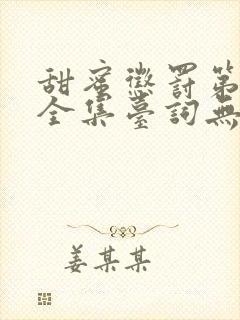 甜蜜懲罰第
全集臺詞無
姜某某